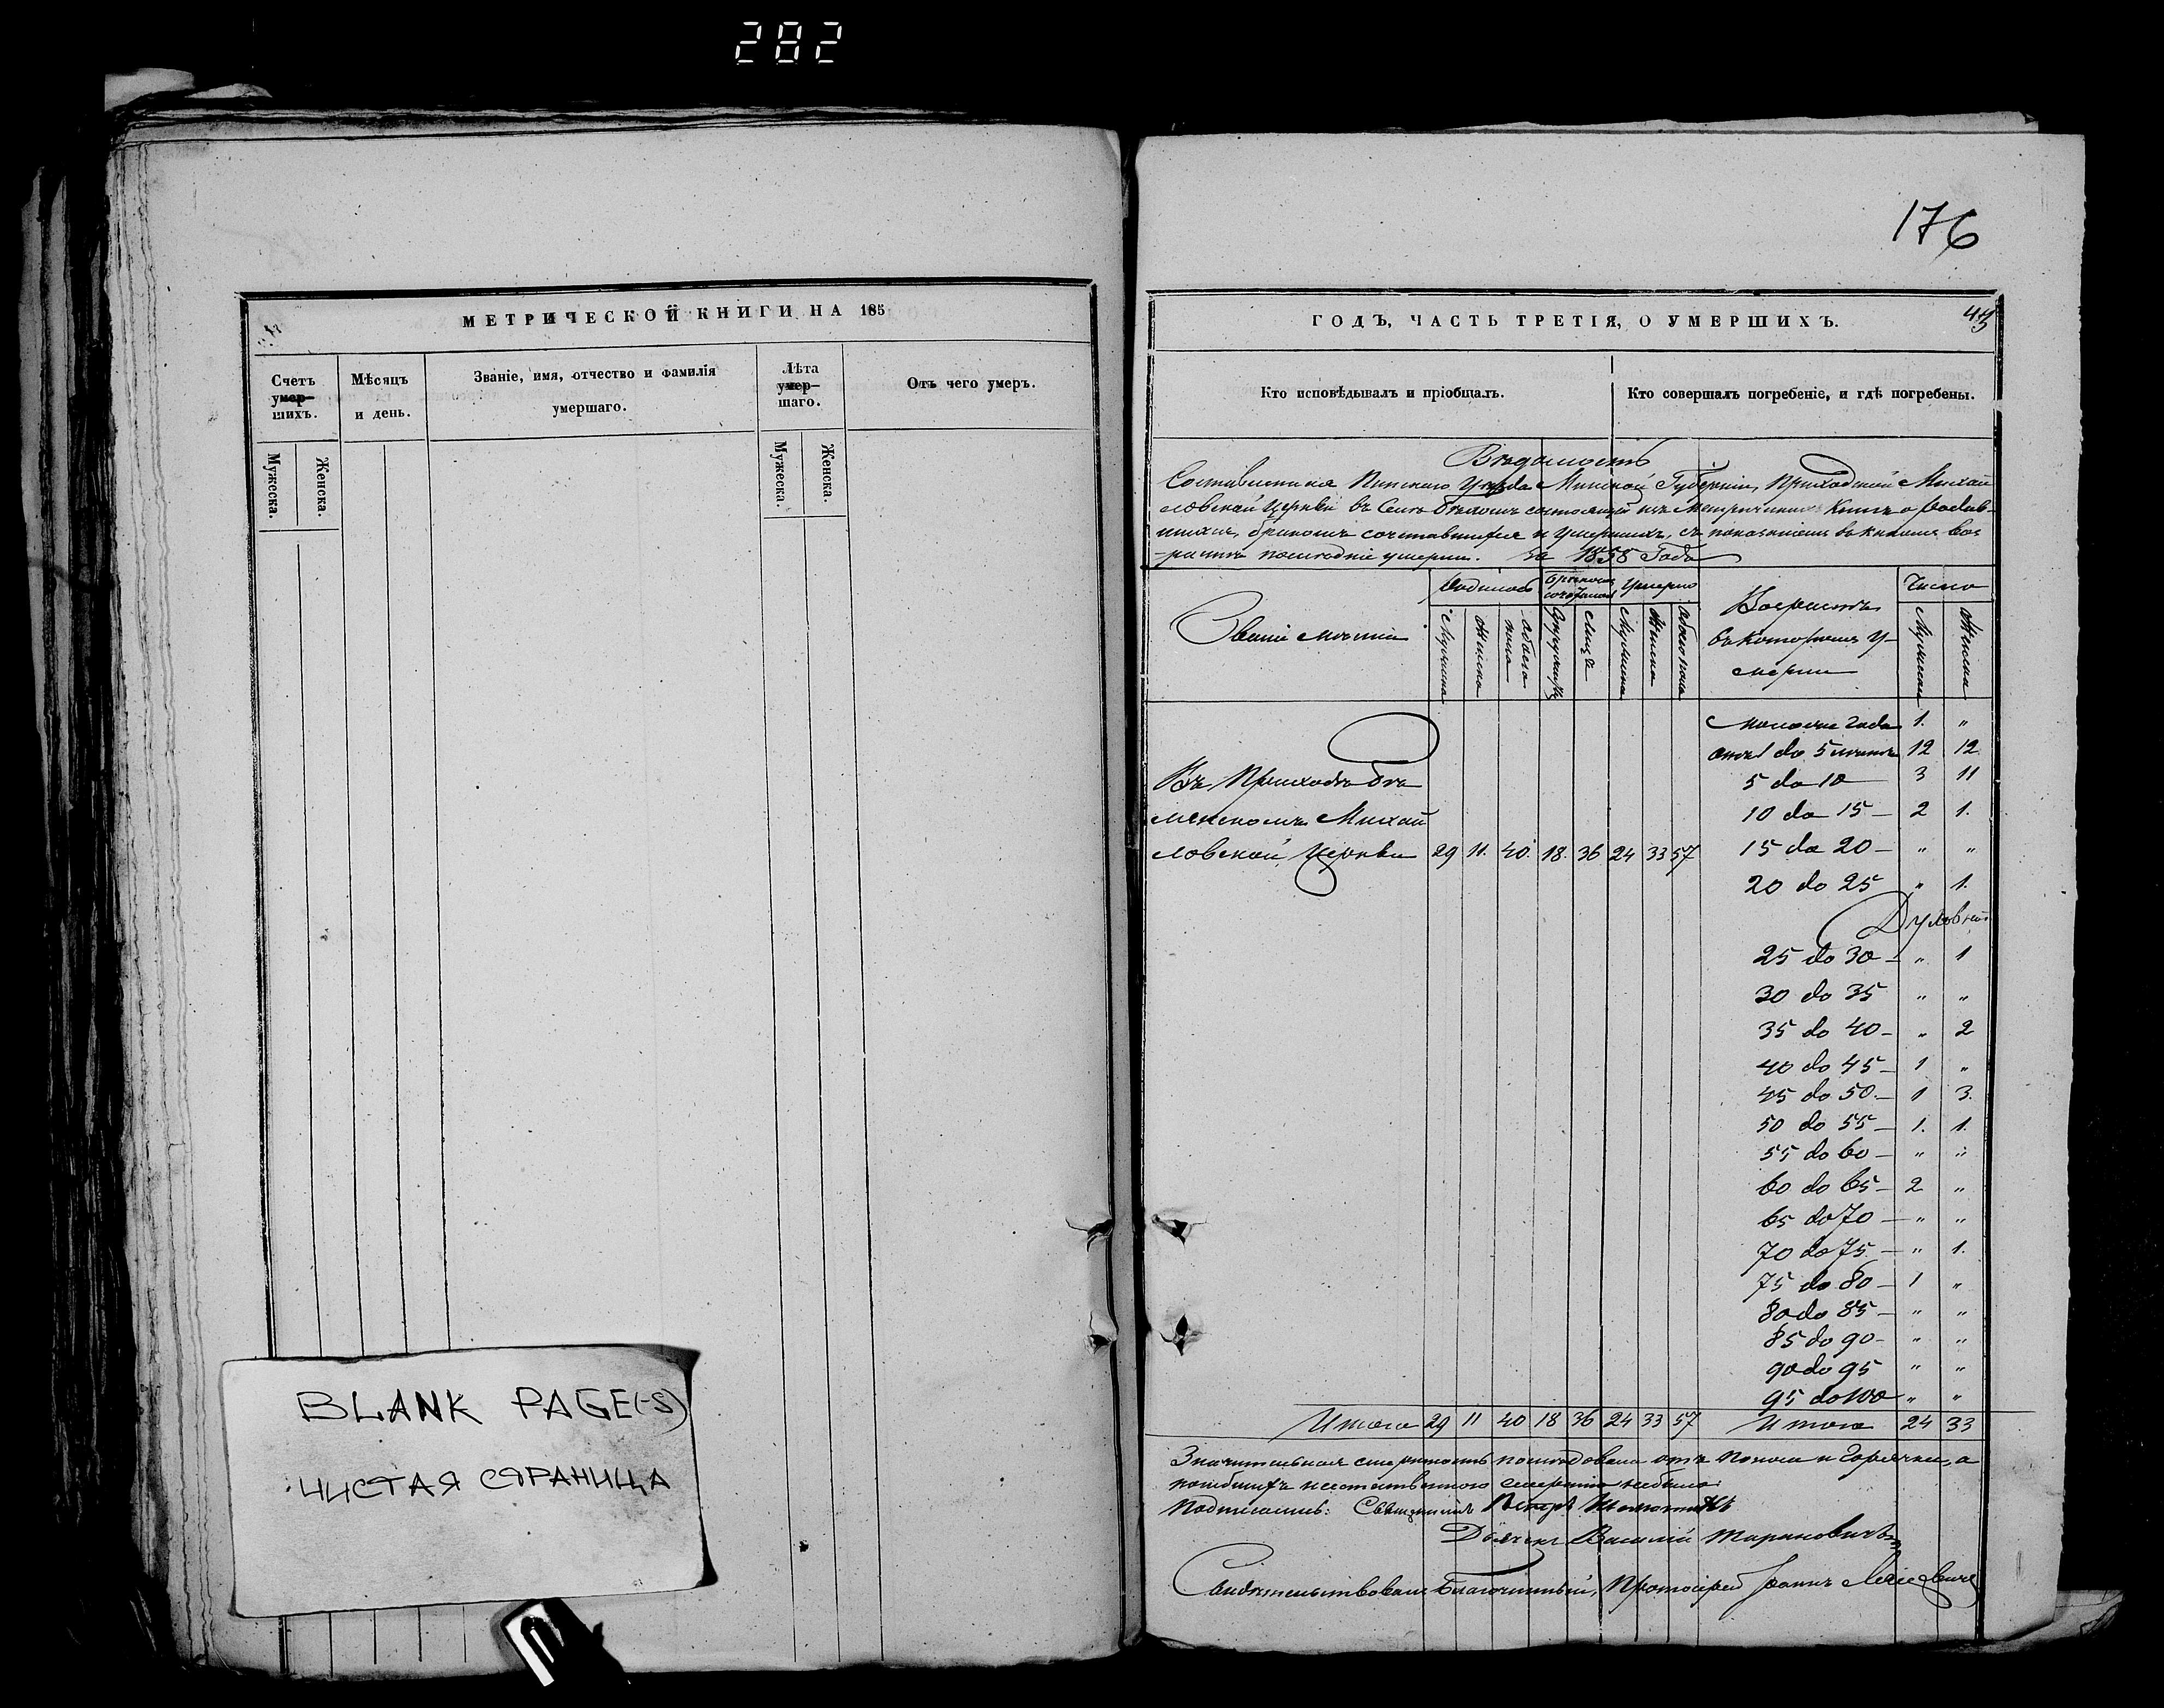 282
МЕТРИЧЕСКОЙ КНИГИ НА 185
Счетъ умер-шихъ.
Мѣсяцъ и день.
Званіе, имя, отчество и фамилія умершаго.
Лѣта умер-шаго.
Отъ чего умеръ.
Мужеска.
Женска.
Мужеска.
Женска.
BLANK PAGE(-S)
ЧИСТАЯ СТРАНИЦА
176
ГОДЪ, ЧАСТЬ ТРЕТІЯ, О УМЕРШИХЪ.
Кто исповѣдывалъ и пріобщалъ.
Кто совершалъ погребеніе, и гдѣ погребены.
Вѣдомость
Составленная Пинскаго Уѣзда Минской Губерніи, Приходской Михай
ловской Церкви въ Селѣ состоящей изъ Метрическихъ Книгъ о родив-
шихся, бракомъ сочетавшихся и умершихъ, съ показаніемъ въ какомъ воз
-растѣ послѣдніе умерли. За 1858 Годъ
Званіе мѣстъ
Родилось
Бракомъ сочетались
Умерло
Возрастъ
въ которомъ у-
мерли
Число
Мужеска
Женска
обоего пола
лицъ
Мужеска
Женска
обоего пола
Мужеска
Женска
моложе года 1. "
отъ 1 до 5 лѣтъ 12 12
5 до 10 3 11
10 до 15 — 2 1.
15 до 20 — " "
20 до 25 " 1.
25 до 30 — " 1
30 до 35 " "
35 до 40 — " 2
40 до 45 — 1 "
45 до 50 — 1 3.
50 до 55 — 1. 1.
55 до 60 — " "
60 до 65 — 2 "
65 до 70 — " "
70 до 75 — " 1.
75 до 80 — 1 "
80 до 85 — " "
85 до 90 - " "
90 до 95 " "
95 до 100 " "
Въ Приходѣ
Михай
ловской Церкви 29 11. 40. 18. 36 24 33 57
Итого 29 11 40 18 36 24 33 57 Итого 24 33
Значительная смертность послѣдовала отъ поноса и Горячки, а
неестественною смертію небыло
Подписались: Священникъ Петръ
Дьячекъ Василій Тарановичъ
Свидѣтельствовалъ Благочинный, Протоіерей Іоаннъ